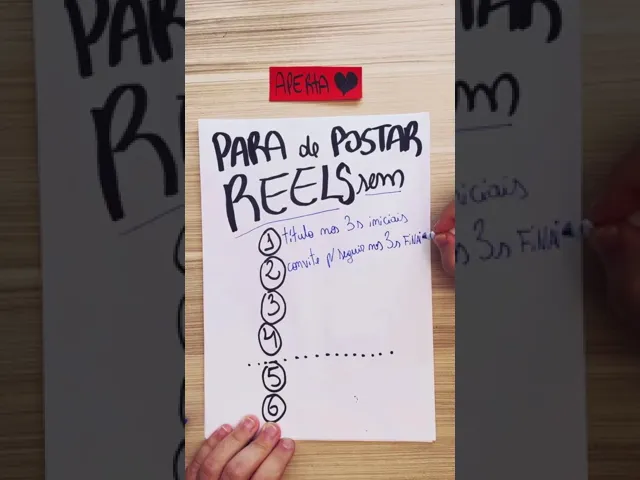 APERTA ♥
PARA de POSTAR
REELS sem
1 título nos 3s iniciais
2 convite p/ seguir nos 3s FiNAi
3
4
5
6